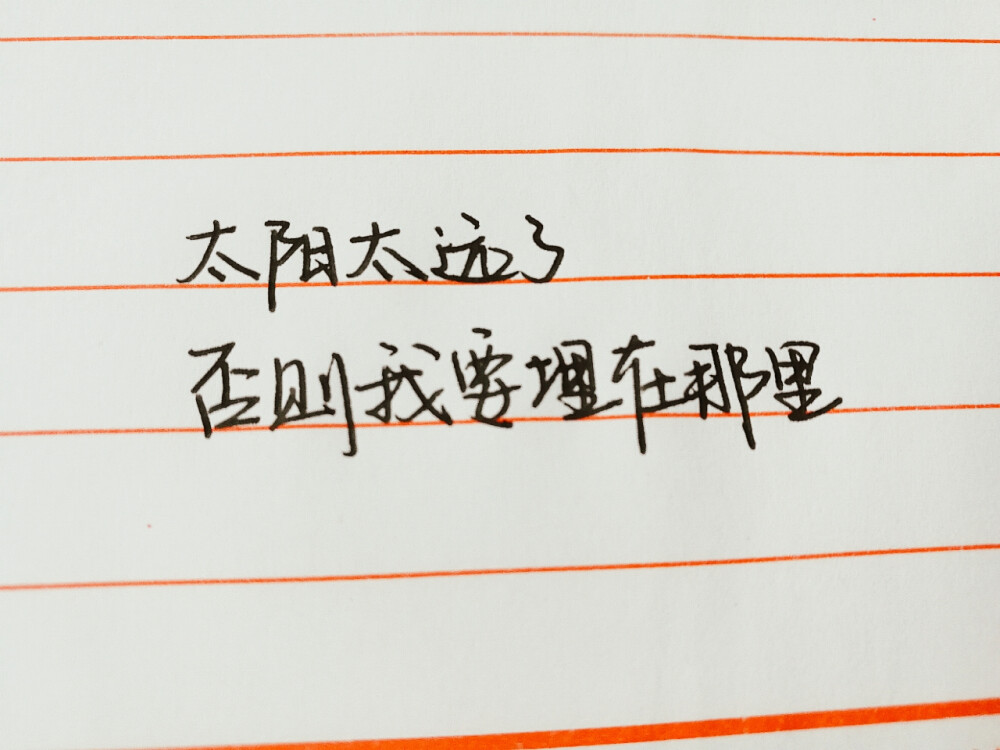 太阳太远了
否则我要埋在那里